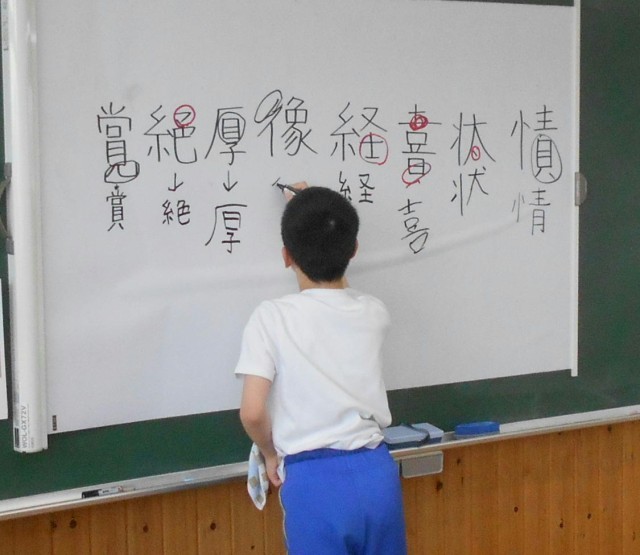 情
情
状
状
喜
喜
経
経
像
厚
↓
厚
絶
↓
絶
賞
賞
WOL-GX72V